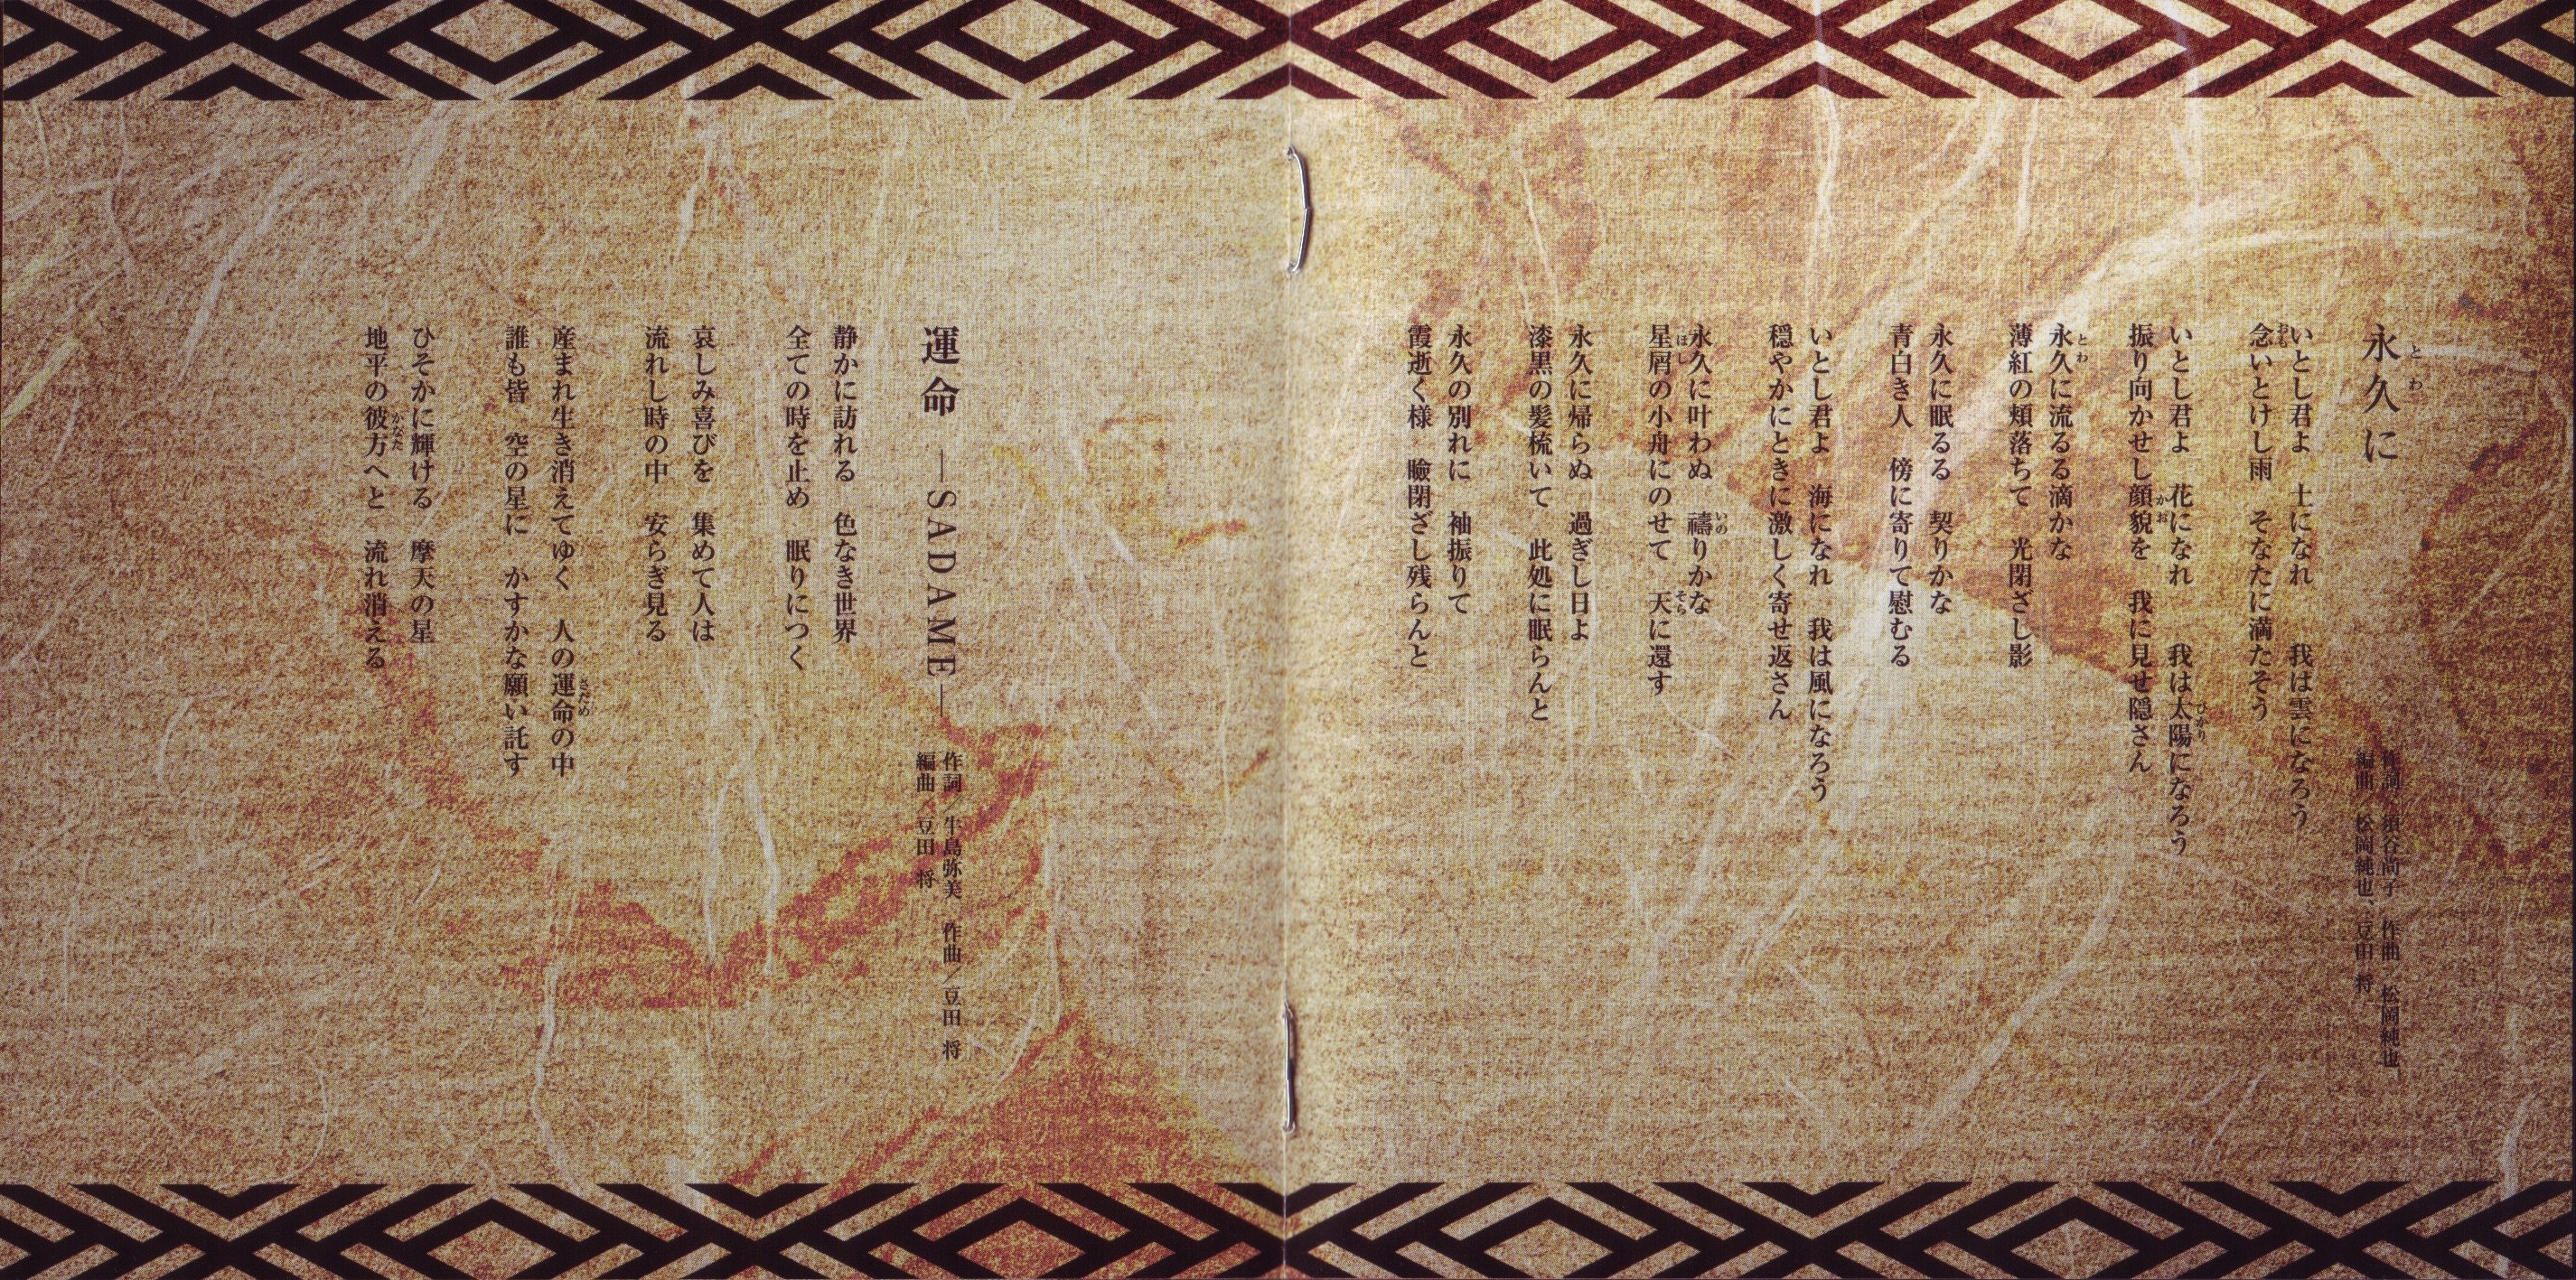 永久に
とわ
作詞／須谷尚子　作曲／松岡純也
編曲／松岡純也、豆田 将
いとし君よ　土になれ　我は雲になろう
念いとけし雨　そなたに満たそう
おも
いとし君よ　花になれ　我は太陽になろう
ひかり
振り向かせし顔貌を　我に見せ隠さん
かお
永久に流るる滴かな
とわ
薄紅の頬落ちて　光閉ざし影
永久に眠るる　契りかな
青白き人　傍に寄りて慰むる
いとし君よ　海になれ　我は風になろう
穏やかにときに激しく寄せ返さん
永久に叶わぬ　禱りかな
いの
星屑の小舟にのせて　天に還す
ほし
そら
永久に帰らぬ　過ぎし日よ
漆黒の髪梳いて　此処に眠らんと
永久の別れに　袖振りて
霞逝く様　瞼閉ざし残らんと
運命　―SADAME―
作詞／牛島弥美　作曲／豆田 将
編曲／豆田 将
静かに訪れる　色なき世界
全ての時を止め　眠りにつく
哀しみ喜びを　集めて人は
流れし時の中　安らぎ見る
産まれ生き消えてゆく　人の運命の中
さだめ
誰も皆　空の星に　かすかな願い託す
ひそかに輝ける　摩天の星
地平の彼方へと　流れ消える
かなた